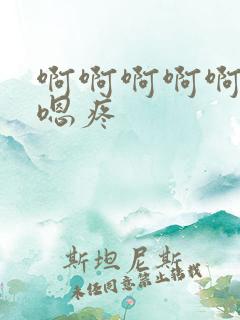 啊啊啊啊啊
嗯疼
斯坦尼斯
未经同意禁止转载